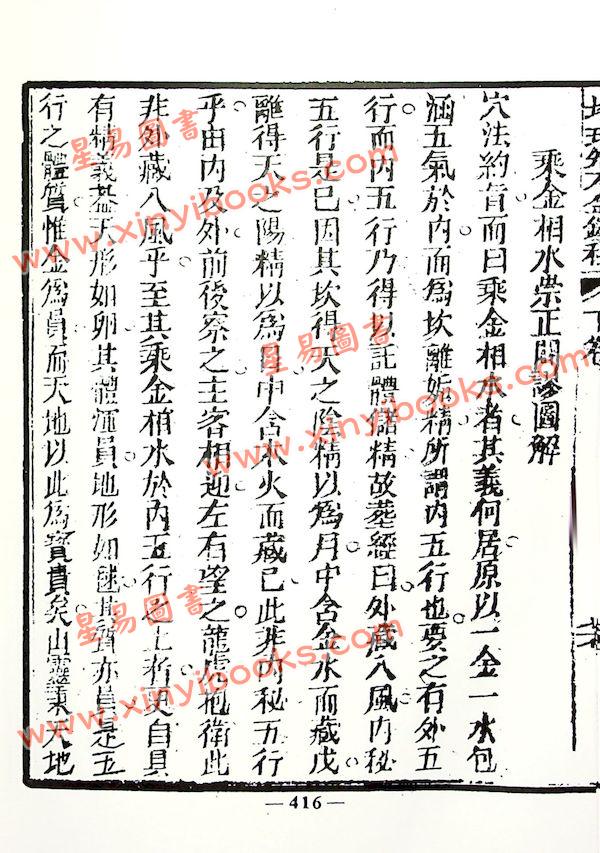 下卷
乘金相水崇正闢謬圖解
穴法約旨而曰乘金相水者其義何居原以一金一水包
涵五氣於內而爲坎離姤精所謂內五行也要之有外五
行而內五行乃得以託體儲精故葬經曰外藏八風內秘
五行是已因其坎得天之陰精以爲月中含金水而藏戊
離得天之陽精以爲日中含木火而藏已此非內秘五行
乎由內及外前後察之主客相迎左右望之龍虎抱衛此
非外藏八風乎至其乘金相水於內五行之土者更自具
有精義蓋天形如卵其體渾員地形如毬其質亦員是五
行之體質惟金爲員而天地以此爲寶貴矣山靈秉天地
— 416 —
星易圖書
www.xinyibooks.com
星易圖書
www.xinyibooks.com
星易圖書
www.xinyibooks.com